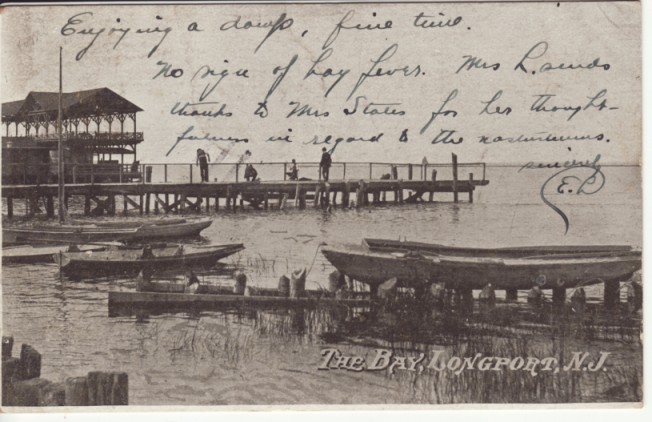 Enjoying a damp, fine time.
No sign of hay fever. Mrs L. sends
thanks to Mrs States for her thought-
fulness in regard to the nasturtiums.
sincerely
E. L.
THE BAY, LONGPORT, N.J.